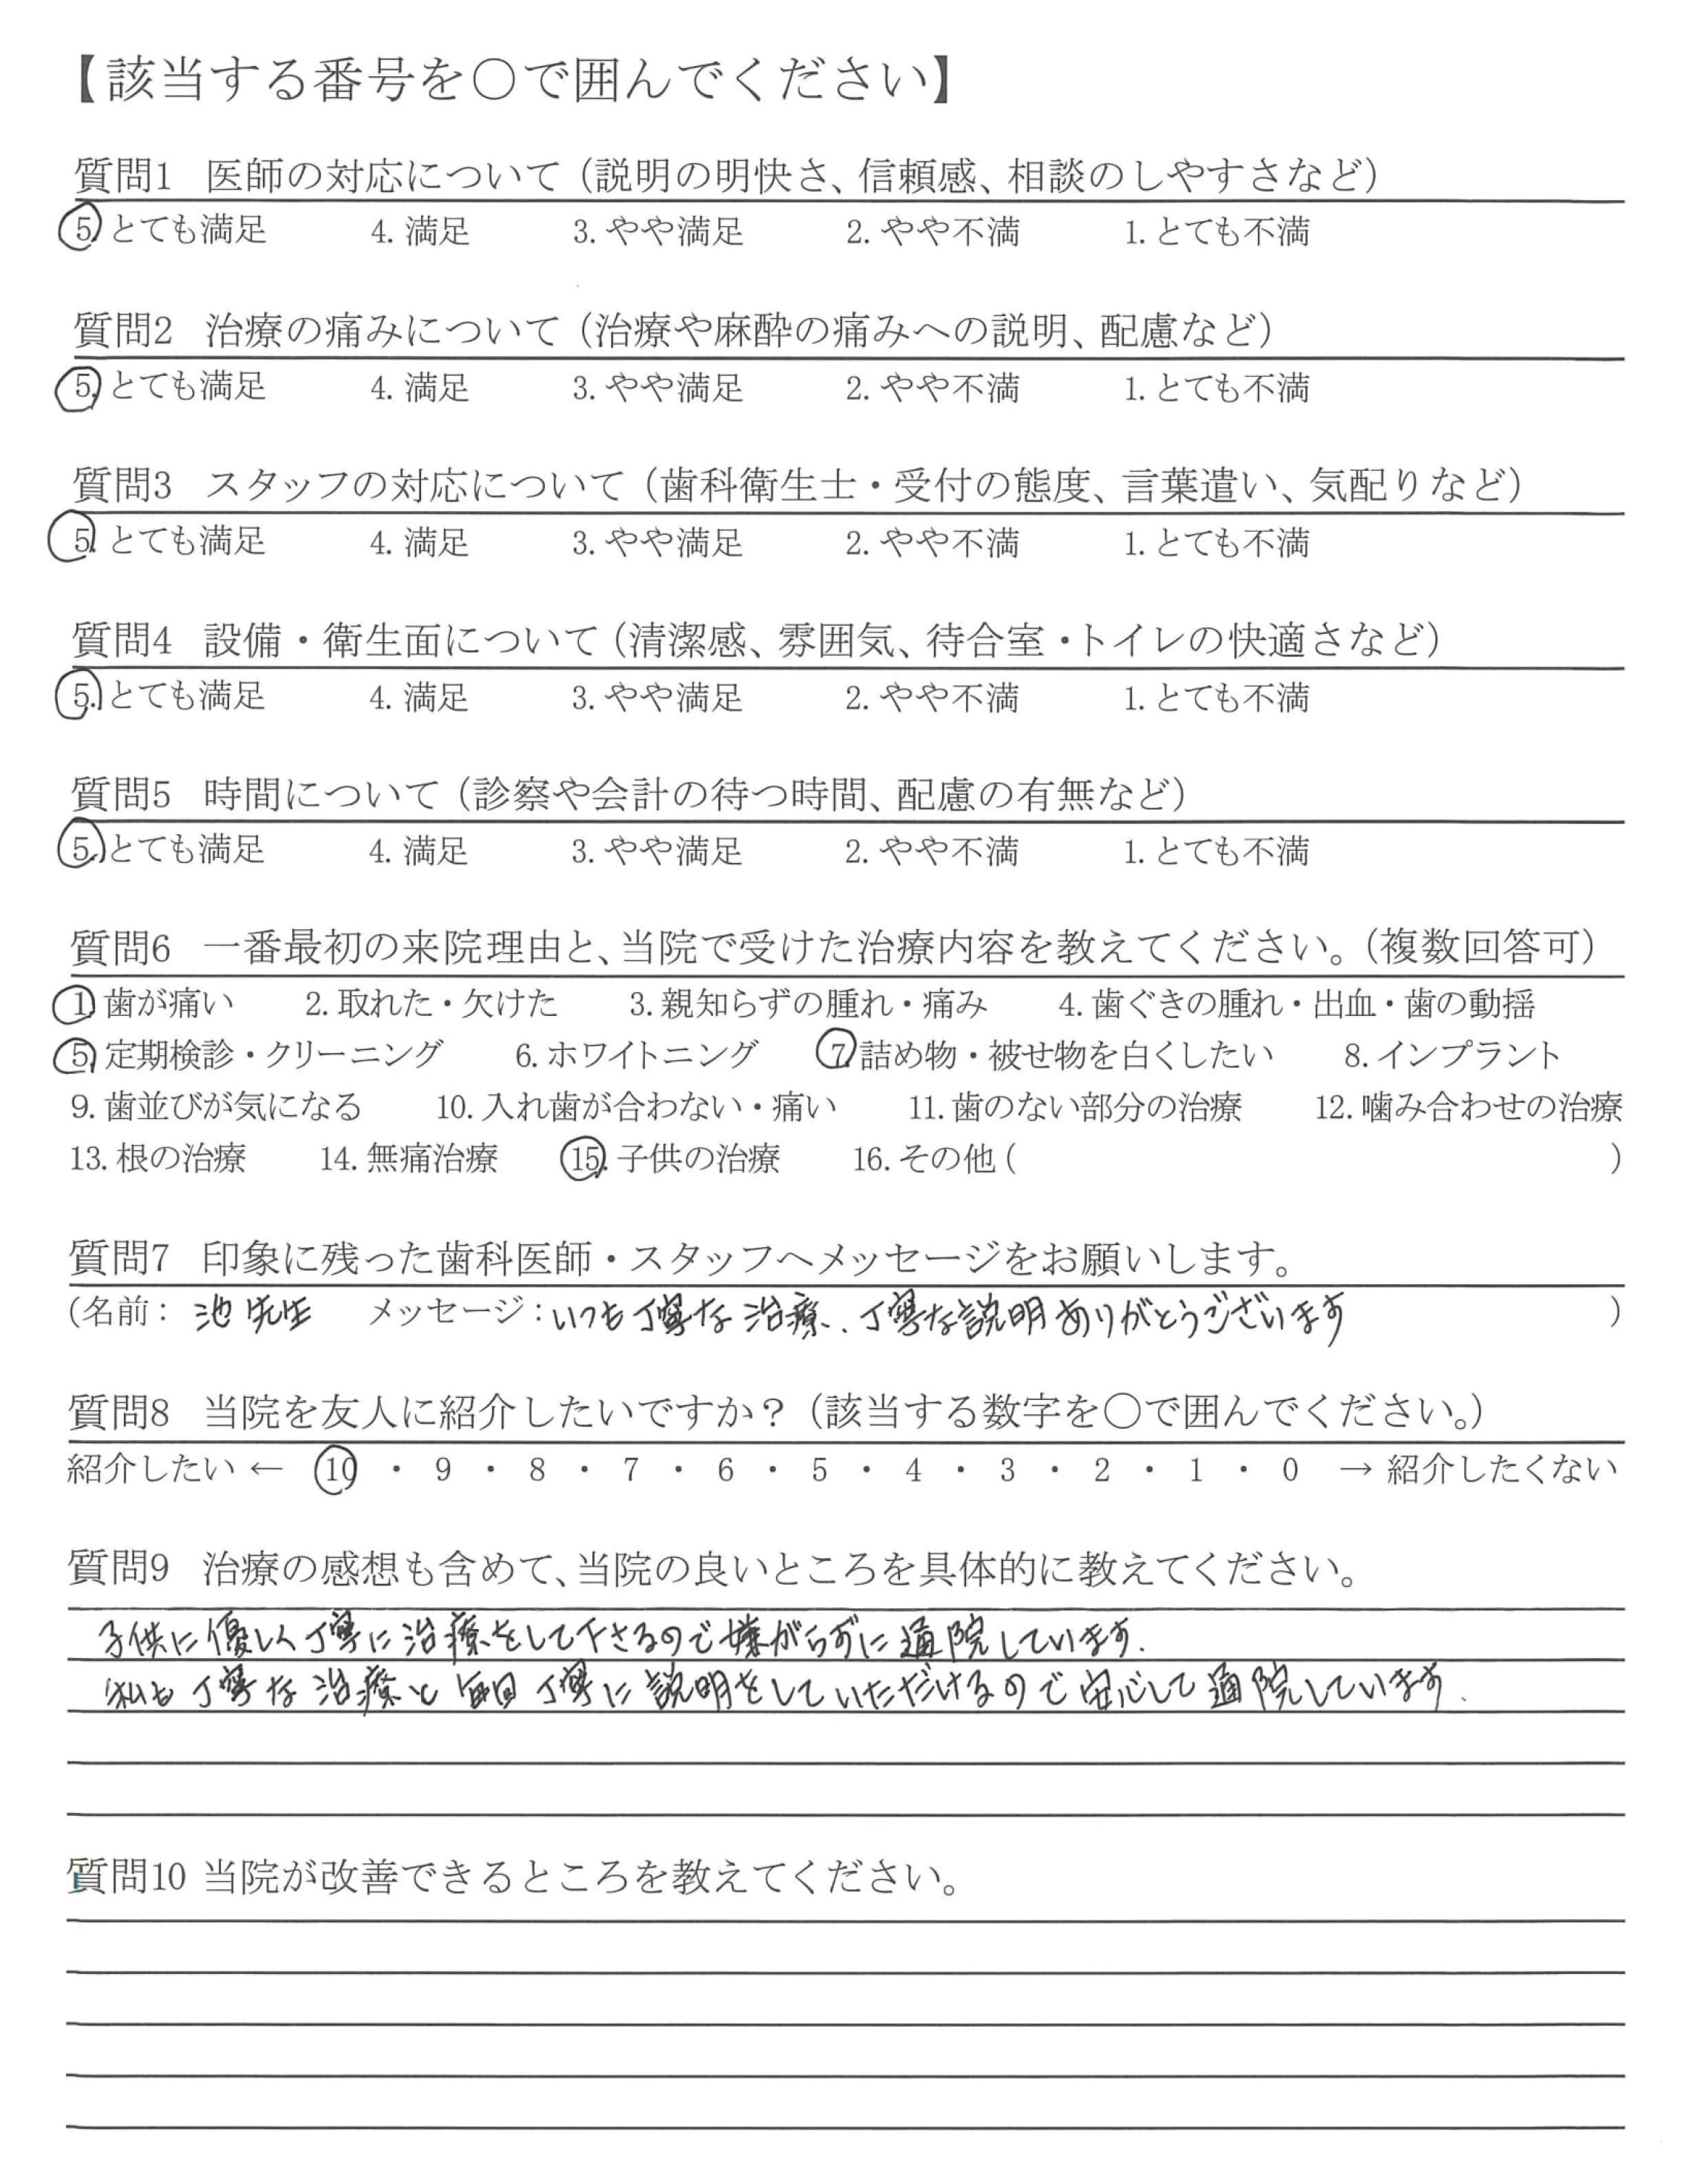 【該当する番号を○で囲んでください】
質問1 医師の対応について（説明の明快さ、信頼感、相談のしやすさなど）
5. とても満足 4. 満足 3. やや満足 2. やや不満 1. とても不満
質問2 治療の痛みについて（治療や麻酔の痛みへの説明、配慮など）
5. とても満足 4. 満足 3. やや満足 2. やや不満 1. とても不満
質問3 スタッフの対応について（歯科衛生士・受付の態度、言葉遣い、気配りなど）
5. とても満足 4. 満足 3. やや満足 2. やや不満 1. とても不満
質問4 設備・衛生面について（清潔感、雰囲気、待合室・トイレの快適さなど）
5. とても満足 4. 満足 3. やや満足 2. やや不満 1. とても不満
質問5 時間について（診察や会計の待つ時間、配慮の有無など）
5. とても満足 4. 満足 3. やや満足 2. やや不満 1. とても不満
質問6 一番最初の来院理由と、当院で受けた治療内容を教えてください。（複数回答可）
1. 歯が痛い 2. 取れた・欠けた 3. 親知らずの腫れ・痛み 4. 歯ぐきの腫れ・出血・歯の動揺
5. 定期検診・クリーニング 6. ホワイトニング 7. 詰め物・被せ物を白くしたい 8. インプラント
9. 歯並びが気になる 10. 入れ歯が合わない・痛い 11. 歯のない部分の治療 12. 噛み合わせの治療
13. 根の治療 14. 無痛治療 15. 子供の治療 16. その他（ ）
質問7 印象に残った歯科医師・スタッフへメッセージをお願いします。
（名前： 池先生 メッセージ：いつも丁寧な治療、丁寧な説明ありがとうございます ）
質問8 当院を友人に紹介したいですか？（該当する数字を○で囲んでください。）
紹介したい ← 10 ・ 9 ・ 8 ・ 7 ・ 6 ・ 5 ・ 4 ・ 3 ・ 2 ・ 1 ・ 0 → 紹介したくない
質問9 治療の感想も含めて、当院の良いところを具体的に教えてください。
子供に優しく丁寧に治療をして下さるので嫌がらずに通院しています.
私も丁寧な治療と毎回丁寧に説明をしていただけるので安心して通院しています.
質問10 当院が改善できるところを教えてください。